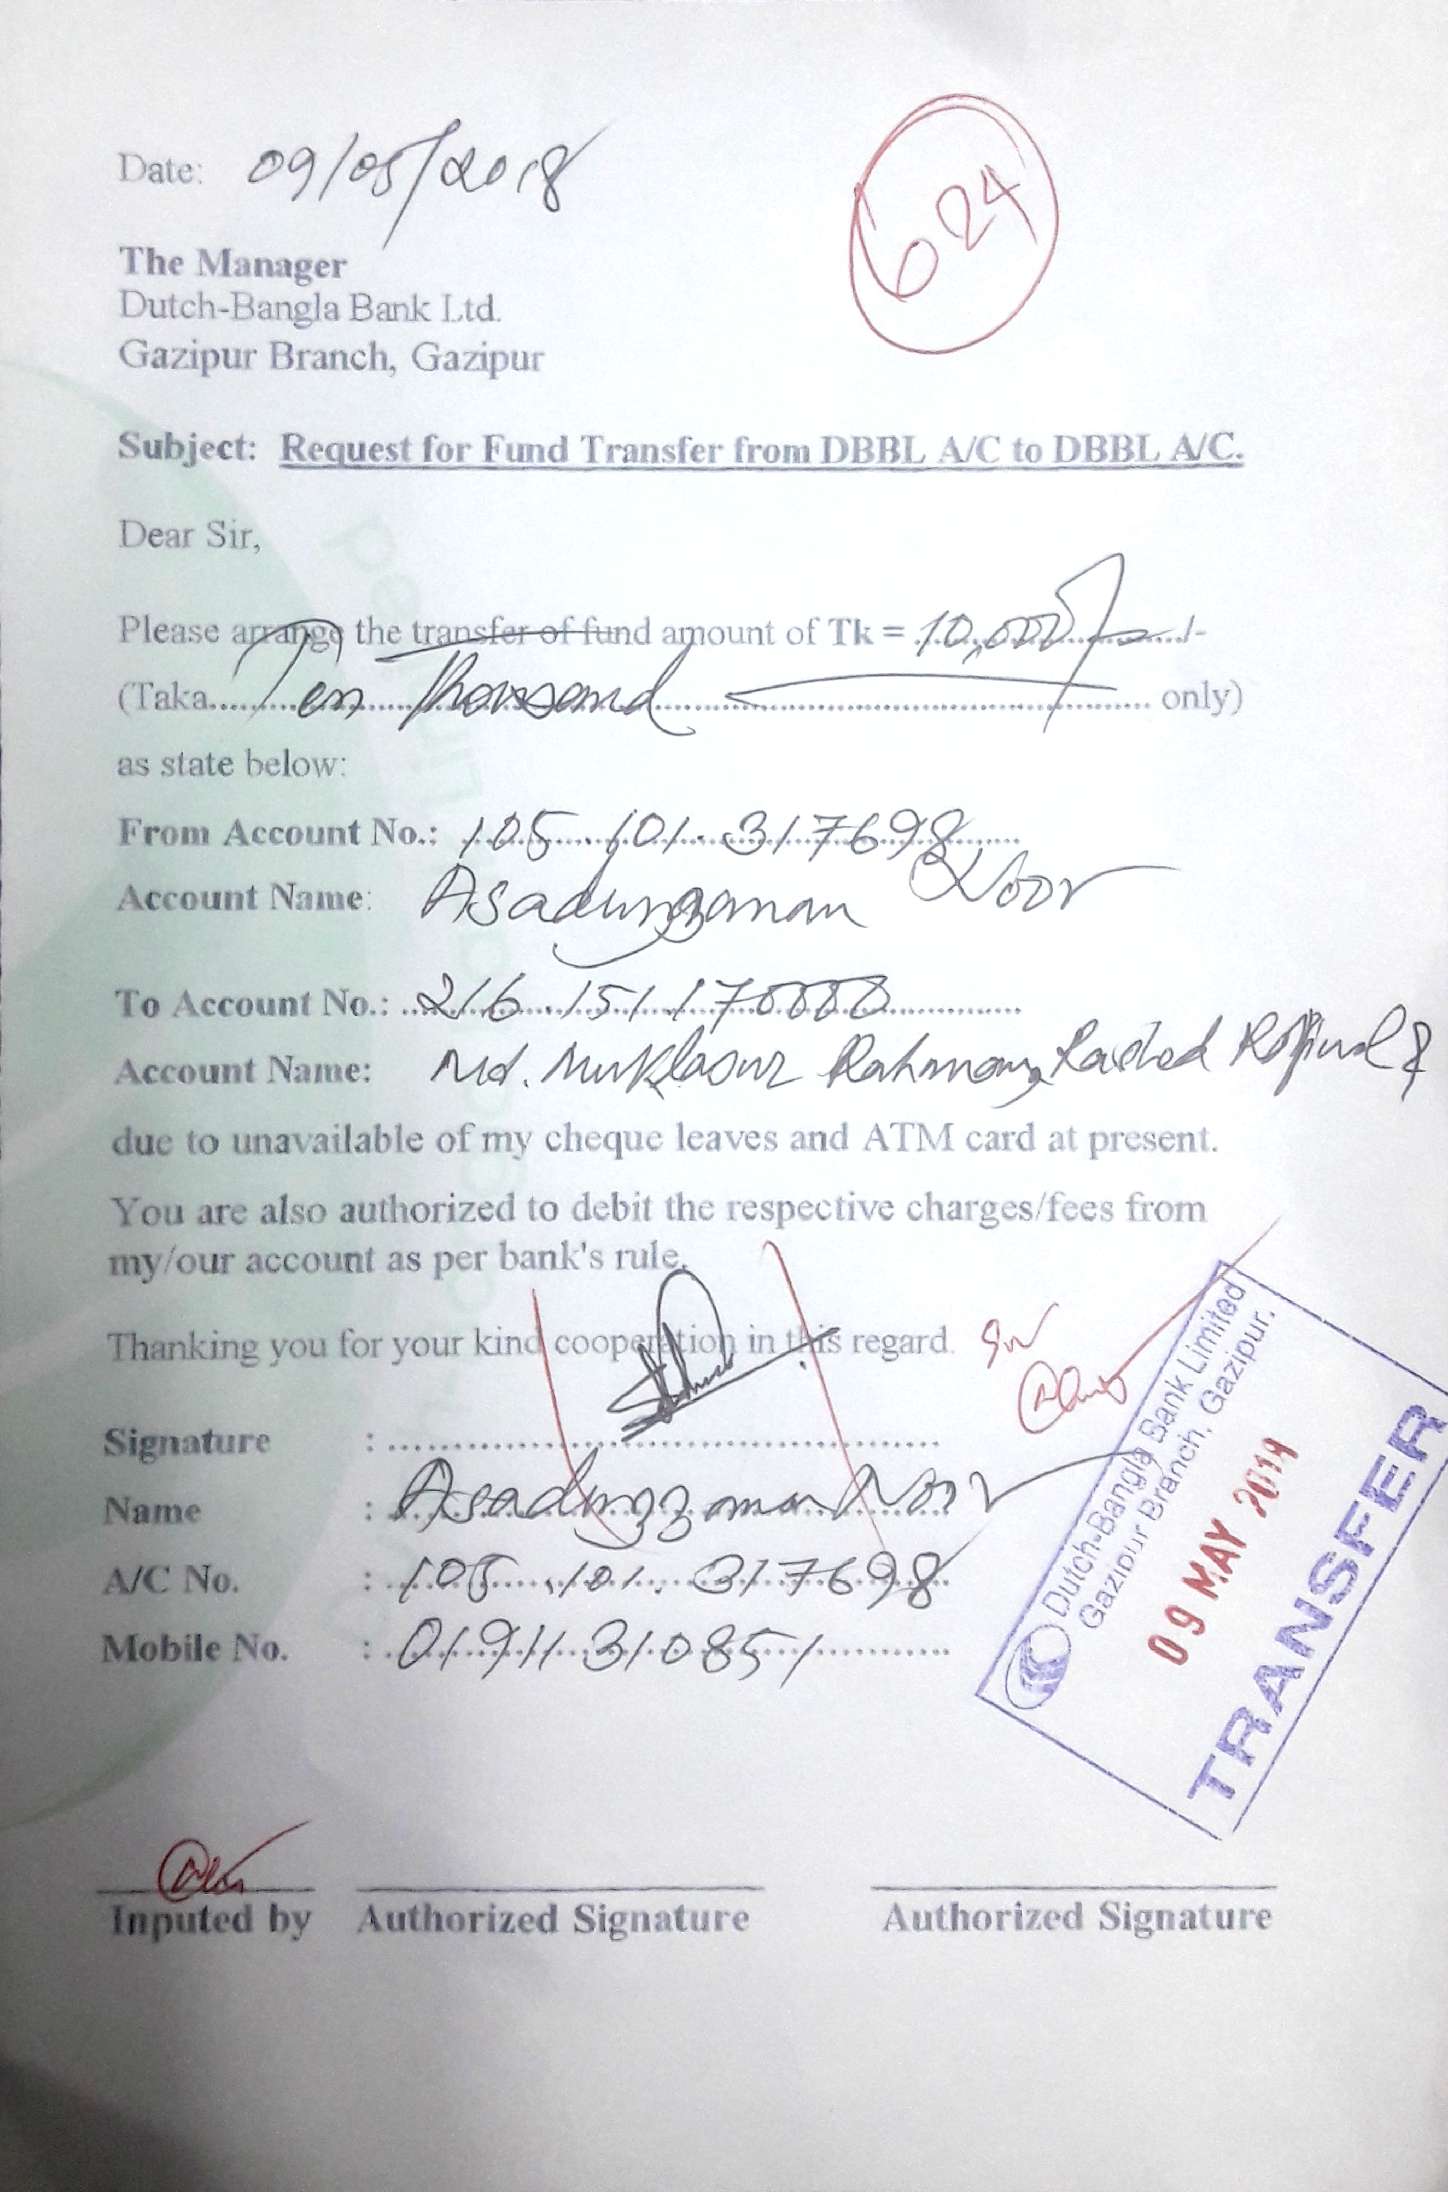 Date: 09/05/2018
624
The Manager
Dutch-Bangla Bank Ltd.
Gazipur Branch, Gazipur
Subject: Request for Fund Transfer from DBBL A/C to DBBL A/C.
Dear Sir,
Please arrange the transfer of fund amount of Tk = 10,000/-
(Taka Ten Thousand only)
as state below:
From Account No.: 105.101.317698
Account Name: Asaduzzaman Noor
To Account No.: 216.151.170000
Account Name: Md. Muklasur Rahman, Rashed &
due to unavailable of my cheque leaves and ATM card at present.
You are also authorized to debit the respective charges/fees from
my/our account as per bank's rule.
Thanking you for your kind cooperation in this regard.
Signature :
Name : Asaduzzaman Noor
A/C No. : 105.101.317698
Mobile No. : 01911310851
Dutch-Bangla Bank Limited
Gazipur Branch, Gazipur.
09 MAY 2019
TRANSFER
Inputed by Authorized Signature Authorized Signature